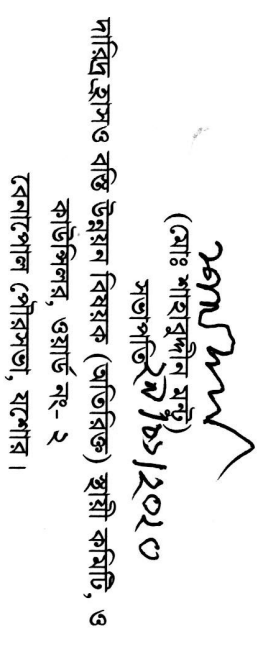 (মোঃ শাহাবুদ্দীন মন্টু)
সভাপতি
দারিদ্র্য হ্রাসও বস্তি উন্নয়ন বিষয়ক (অতিরিক্ত) স্থায়ী কমিটি, ও
কাউন্সিলর, ওয়ার্ড নং- ২
বেনাপোল পৌরসভা, যশোর।